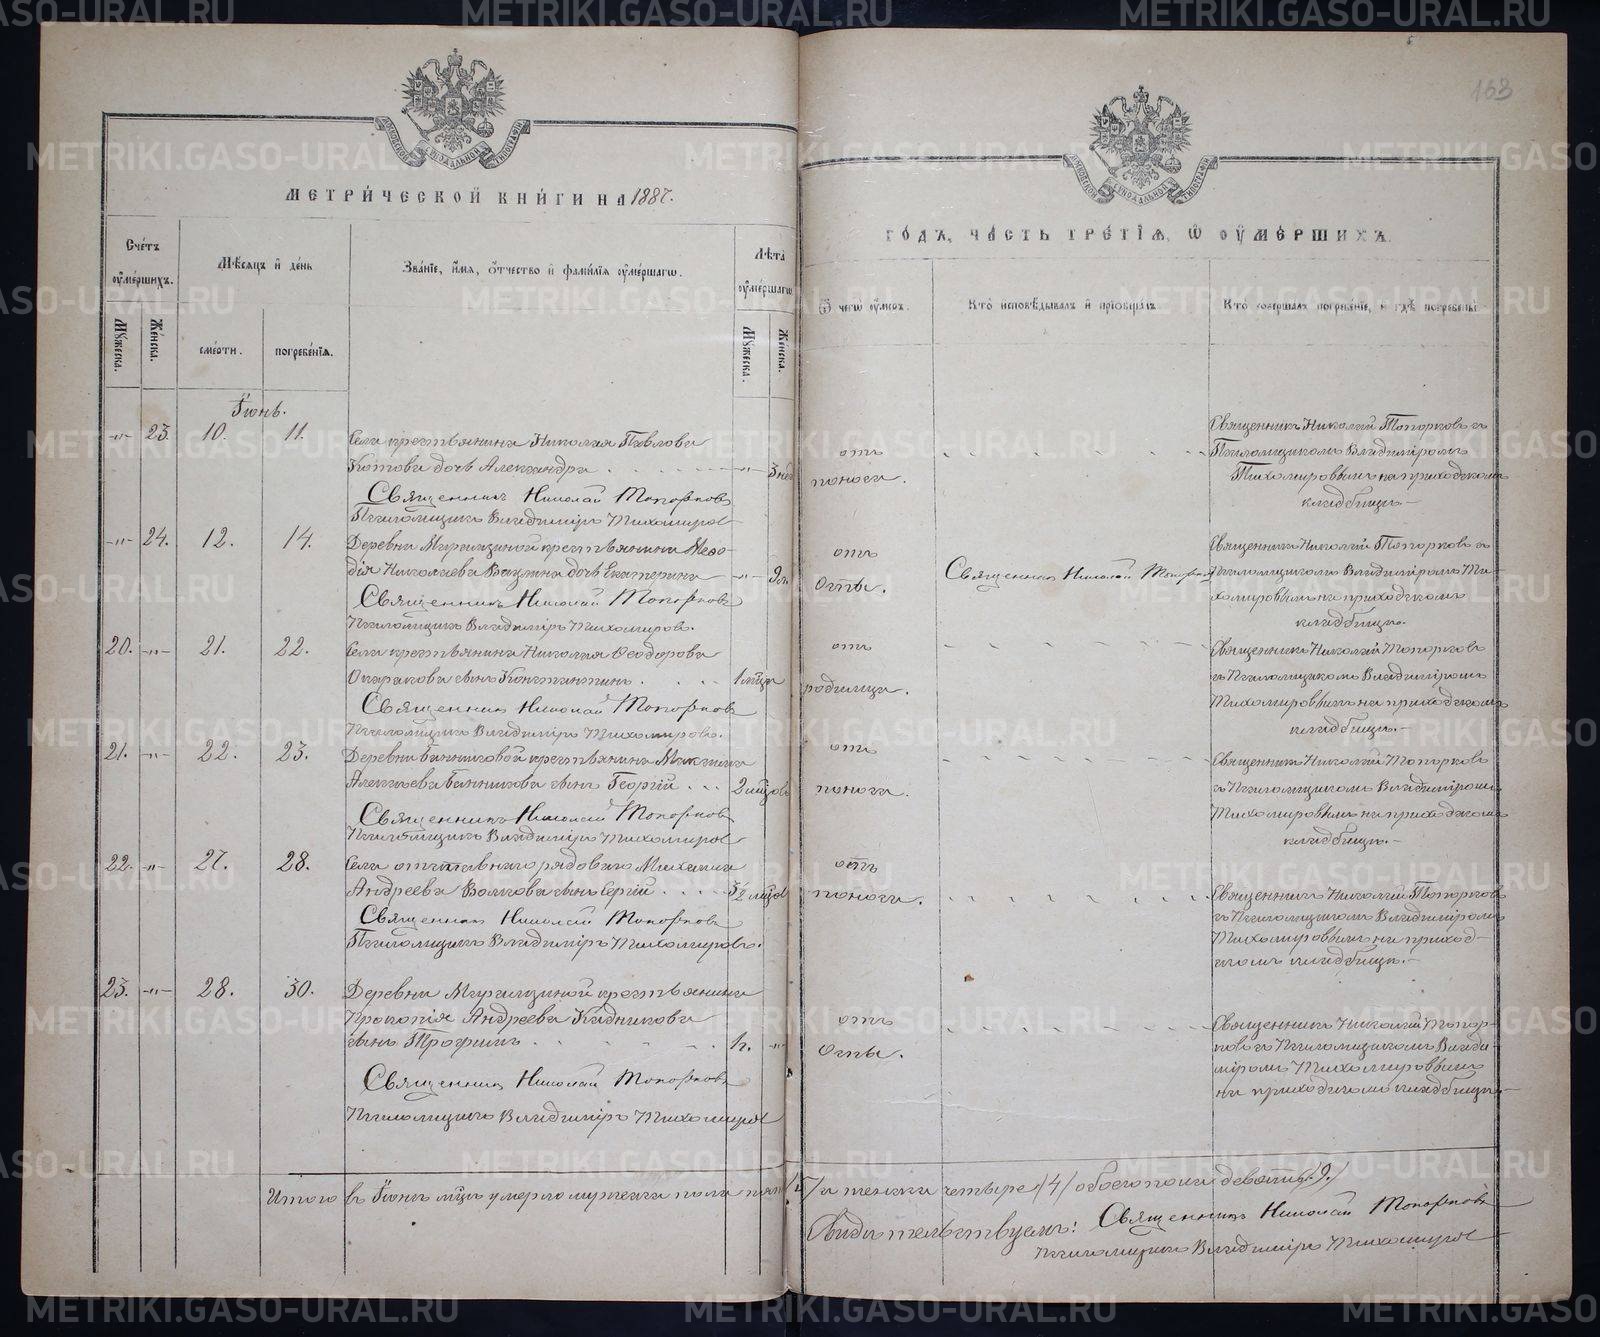 163
МЕТРИ́ЧЕСКОЙ КНИ́ГИ НА 1887.
ГО́ДЪ, ЧА́СТЬ ТРЕ́ТІѦ, Ѽ ОУ҆МЕ́РШИХЪ.
Сче́тъ оу҆ме́ршихъ.
Мѣ́сѧцъ и҆ де́нь
Зва́нїе, и҆́мѧ, ѻ҆́тчество и҆ фами́лїѧ оу҆ме́ршагѡ.
Лѣ́та оу҆ме́ршагѡ
Ѿ чегѡ̀ оу҆́меръ.
Кто̀ и҆сповѣ́дывалъ и҆ прїѡбща́лъ.
Кто̀ соверша́лъ погребе́нїе, и҆ гдѣ̀ погребены̀
Мꙋ́жеска.
Же́нска.
сме́рти.
погребе́нїѧ.
Мꙋ́жеска.
Же́нска.
Іюнь.
-"- 23. 10. 11. Села крестьянина Николая Павлова
Котова дочь Александра . . . . -"- 3 нед
Священникъ Николай Топорковъ
Псаломщикъ Владиміръ Тихомировъ
отъ
поноса.
Священникъ Николай Топорковъ съ
Псаломщикомъ Владиміромъ
Тихомировымъ на приходскомъ
кладбищѣ
-"- 24. 12. 14. Деревни крестьянина Меѳо-
дія Николаева дочь Екатерина -"- 9 л.
Священникъ Николай Топорковъ
Псаломщикъ Владиміръ Тихомировъ.
отъ
Оспы.
Священникъ Николай Топорковъ
Священникъ Николай Топорковъ съ
Псаломщикомъ Владиміромъ Ти-
хомировымъ на приходскомъ
кладбищѣ.
20. -"- 21. 22. Села крестьянина Николая Ѳеодорова
сынъ Константинъ . . . . 1 мѣсяц
Священникъ Николай Топорковъ
Псаломщикъ Владиміръ Тихомировъ.
отъ
родимца.
Священникъ Николай Топорковъ
съ Псаломщикомъ Владиміромъ
Тихомировымъ на приходскомъ
кладбищѣ.
21. -"- 22. 23. Деревни Банниковой крестьянина Максима
Алексѣева Банникова сынъ Георгій . . . 2 мѣсцовъ
Священникъ Николай Топорковъ
Псаломщикъ Владиміръ Тихомировъ
отъ
поноса.
Священникъ Николай Топорковъ
съ Псаломщикомъ Владиміромъ
Тихомировымъ на приходскомъ
кладбищѣ.
22. -"- 27. 28. Села отставнаго рядоваго Михаила
Андреева Волкова сынъ Сергій . . . . мѣсцов
Священникъ Николай Топорковъ
Псаломщикъ Владиміръ Тихомировъ.
отъ
поноса.
Священникъ Николай Топорковъ
съ Псаломщикомъ Владиміромъ
Тихомировымъ на приход-
скомъ кладбищѣ.
23. -"- 28. 30. Деревни крестьянина
Прокопія Андреева Кадникова
сынъ Трофимъ . . . . . -"-
Священникъ Николай Топорковъ
Псаломщикъ Владиміръ Тихомировъ
отъ
Оспы.
Священникъ Николай Топор-
ковъ съ Псаломщикомъ Влади-
міромъ Тихомировымъ
на приходскомъ кладбищѣ.
Итого въ Іюнѣ мѣсяцѣ умерло мужеска пола пять /5/ и женска четыре /4/ обоего пола девять /9./
Свидѣтельствуемъ: Священникъ Николай Топорковъ
Псаломщикъ Владиміръ Тихомировъ
METRIKI.GASO-URAL.RU